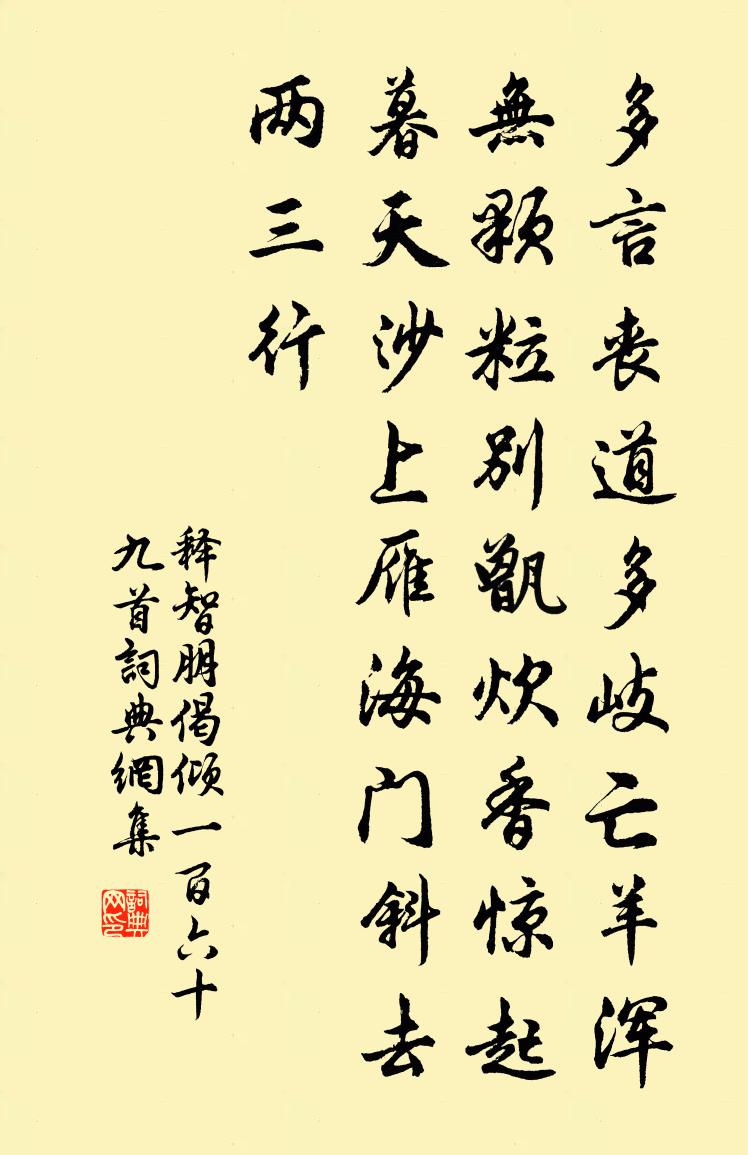 多言丧道多岐亡羊浑
無顆粒别甑炊香惊起
暮天沙上雁海门斜去
两三行
释智朋偈倾一百六十
九首詞典網集
詞典网印